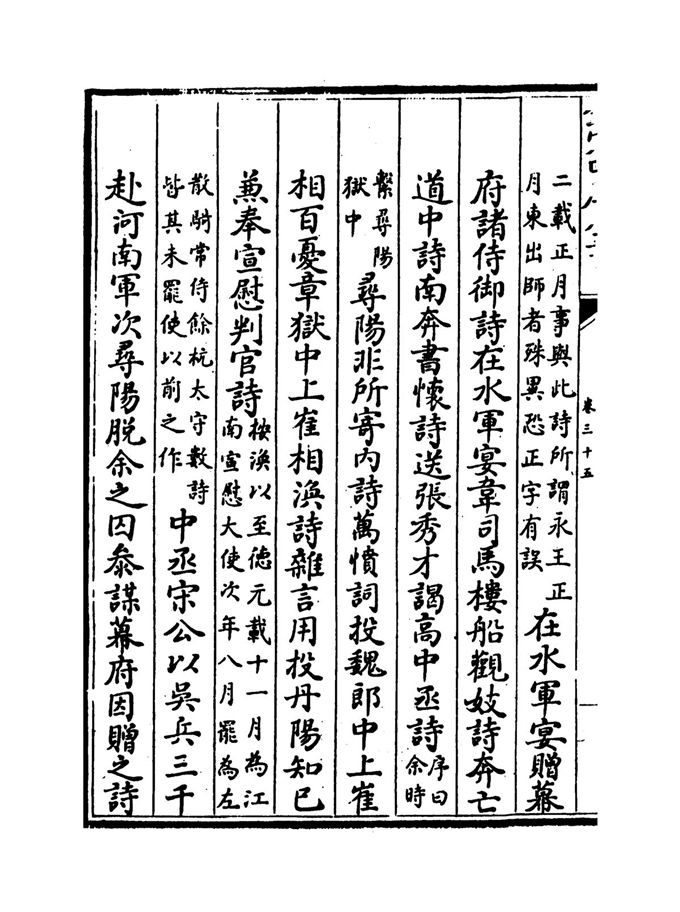 卷三十五
二載正月事與此詩所謂永王正
月東出師者殊異恐正字有誤
在水軍宴贈幕
府諸侍御詩在水軍宴韋司馬樓船觀妓詩奔亡
道中詩南奔書懷詩送張秀才謁高中丞詩
序曰
余時
繫尋陽
獄中
尋陽非所寄內詩萬憤詞投魏郎中上崔
相百憂章獄中上崔相渙詩雜言用投丹陽知已
兼奉宣慰判官詩
按渙以至德元載十一月為江
南宣慰大使次年八月罷為左
散騎常侍餘杭太守數詩
皆其未罷使以前之作
中丞宋公以吳兵三千
赴河南軍次尋陽脫余之囚參謀幕府因贈之詩